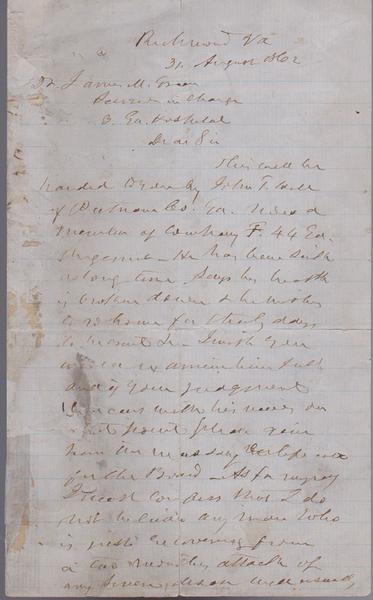 Richmond Va
31 August 1862
Dr James M. Green
Surgeon in Charge
3. Ga. Hospital
Dear Sir
This will be
handed to you by John T.
of Putnam Co. Ga. He is a
member of Company F. 44 Ga.
Regiment. He has been sick
a long time. Says his health
is broken down & he wishes
to go home for thirty days
to I wish you
would examine him
and if your judgment
with his views on
that point please give
him the necessary
for the Board. As for myself
I must confess that I do
not believe any man who
is just recovering from
a two months attack of
any can